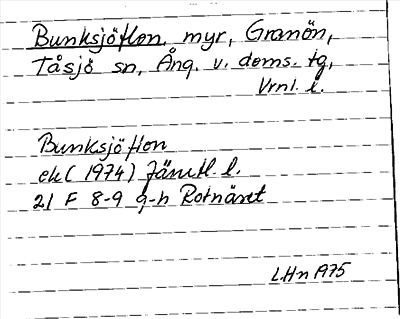 Bunksjöflon, myr, Granön,
Tåsjö sn, Ång. v. doms. tg,
Vrnl. l.
Bunksjöflon
ek (1974) Jämtl. l.
21 F 8-9 g-h Rotnäset
LHn A75